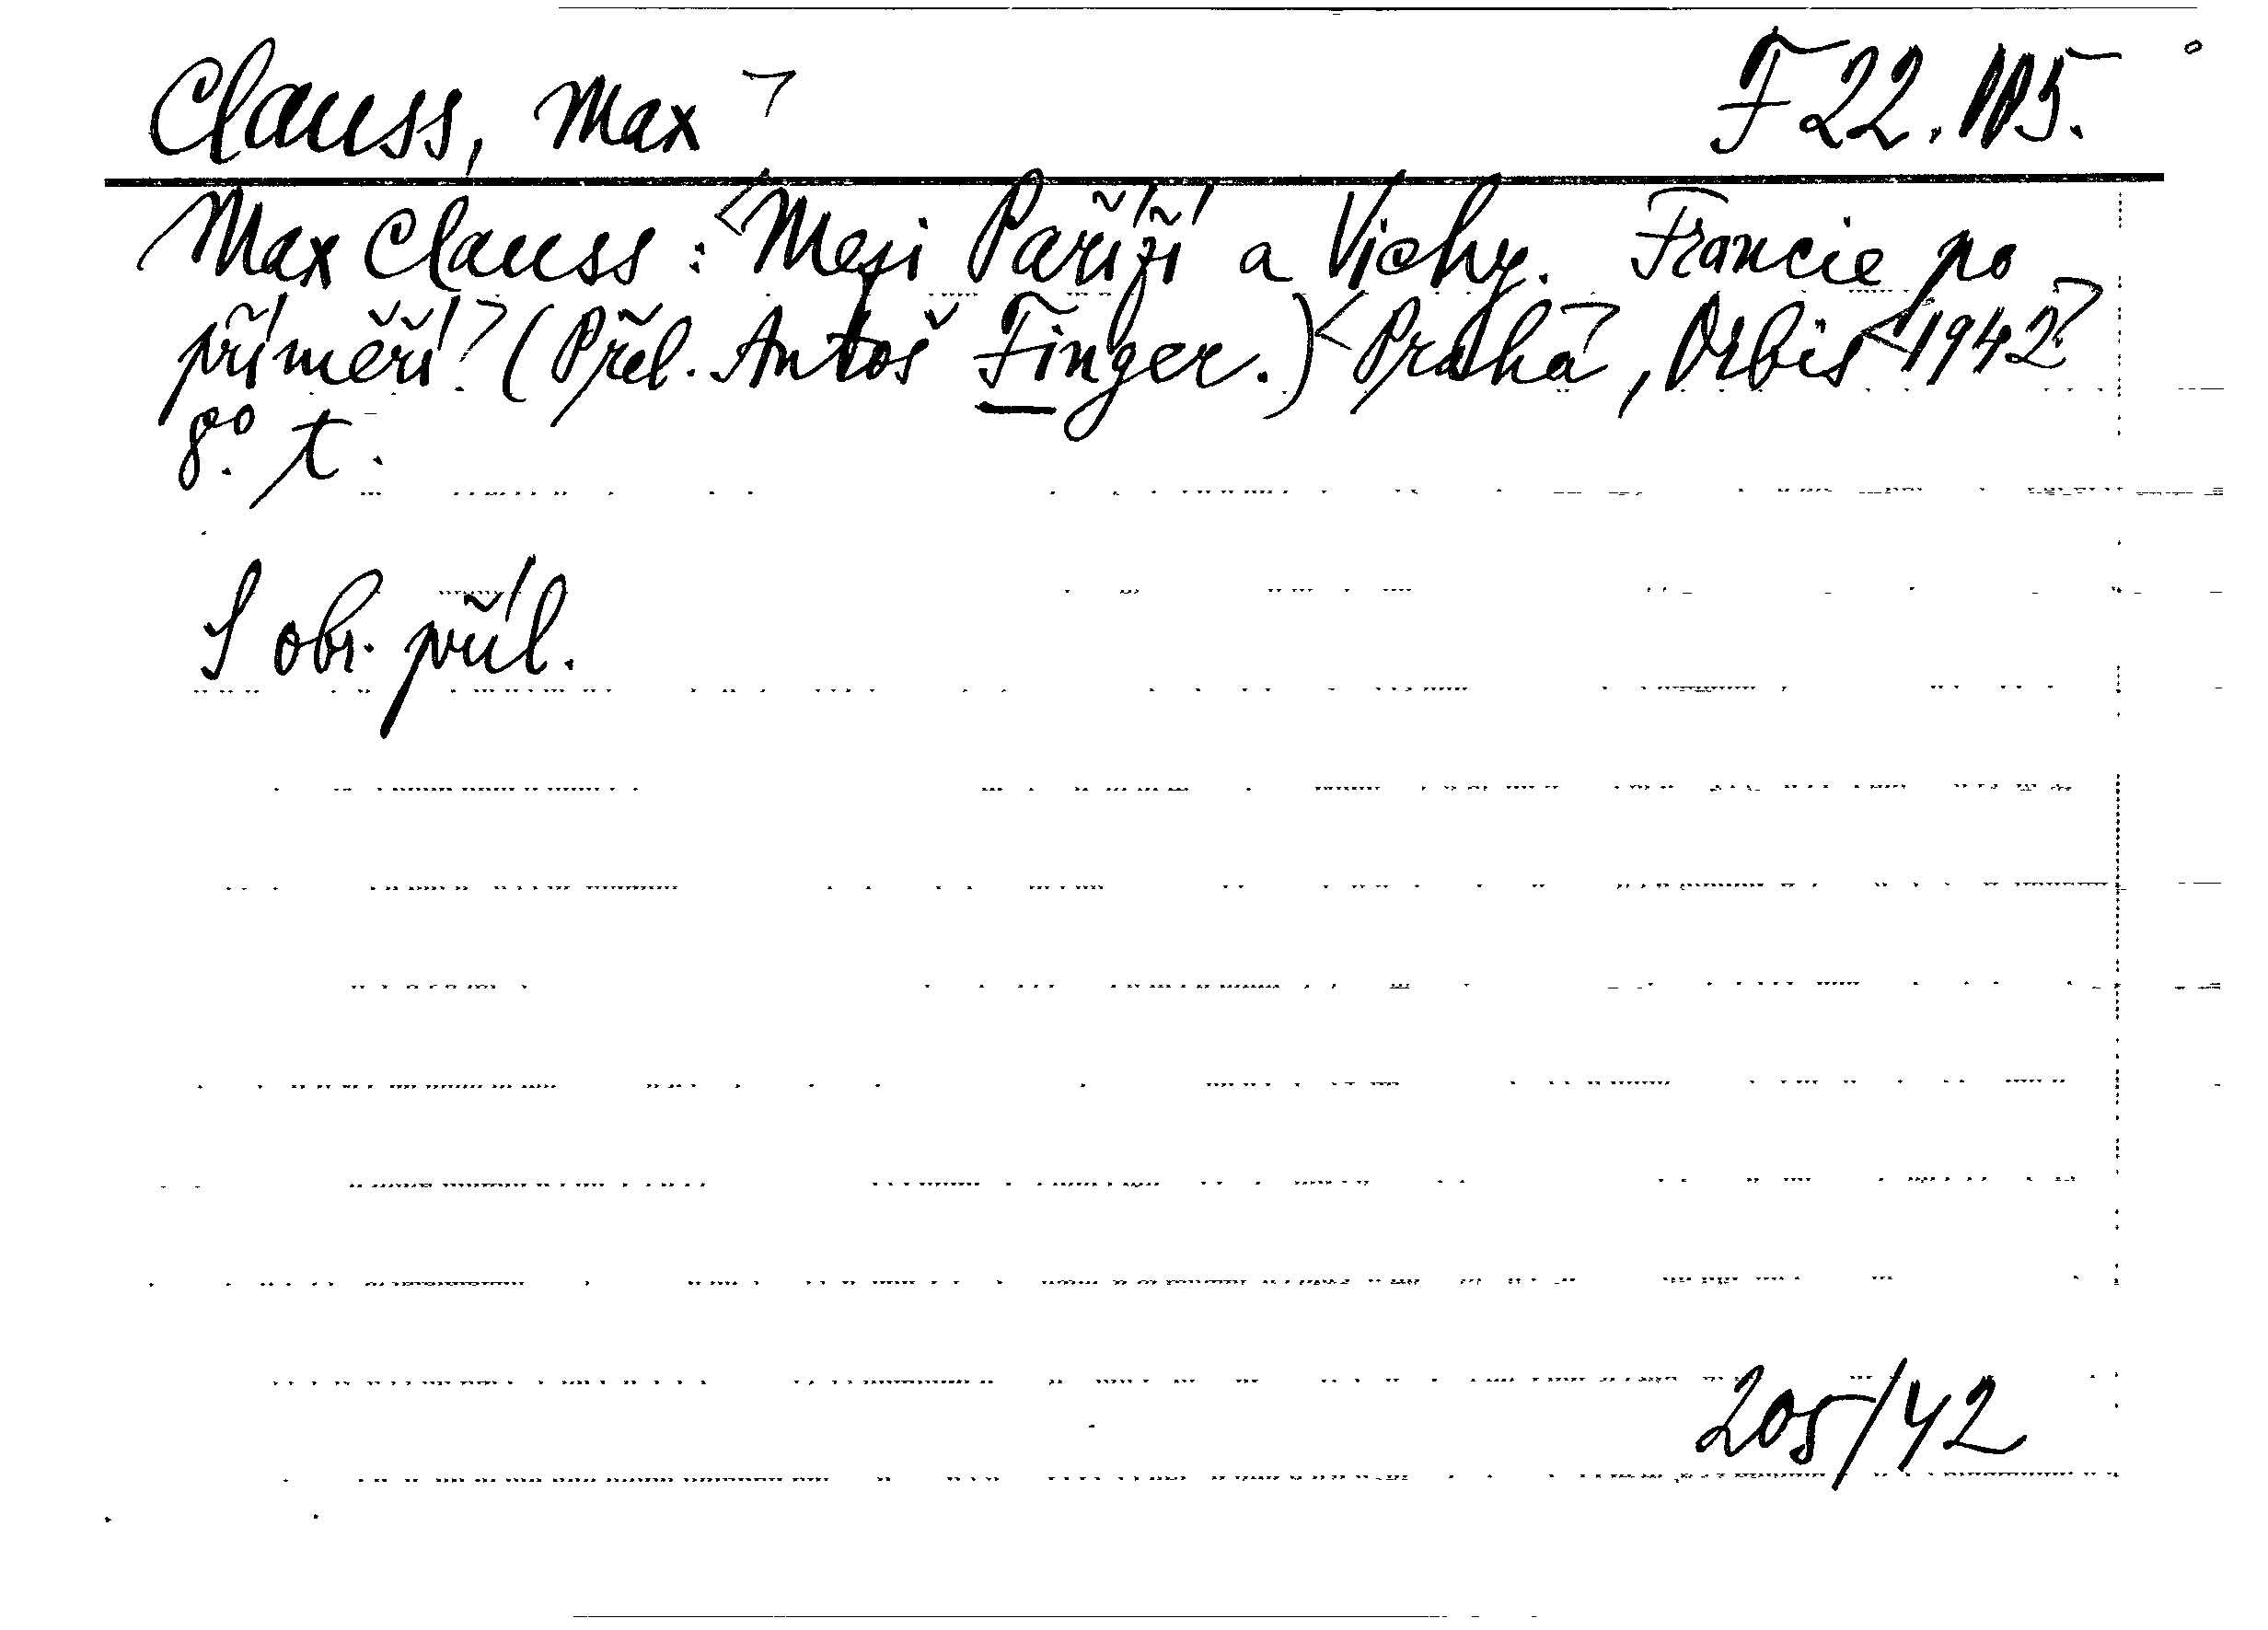 Clauss, Max
F 22.115.
Max Clauss: Mezi Paříží a Vichy. Francie po
příměří. (Přel. Antoš Finger.) Praha, Orbis 1942.
8°. t.
S obr. příl.
205/42